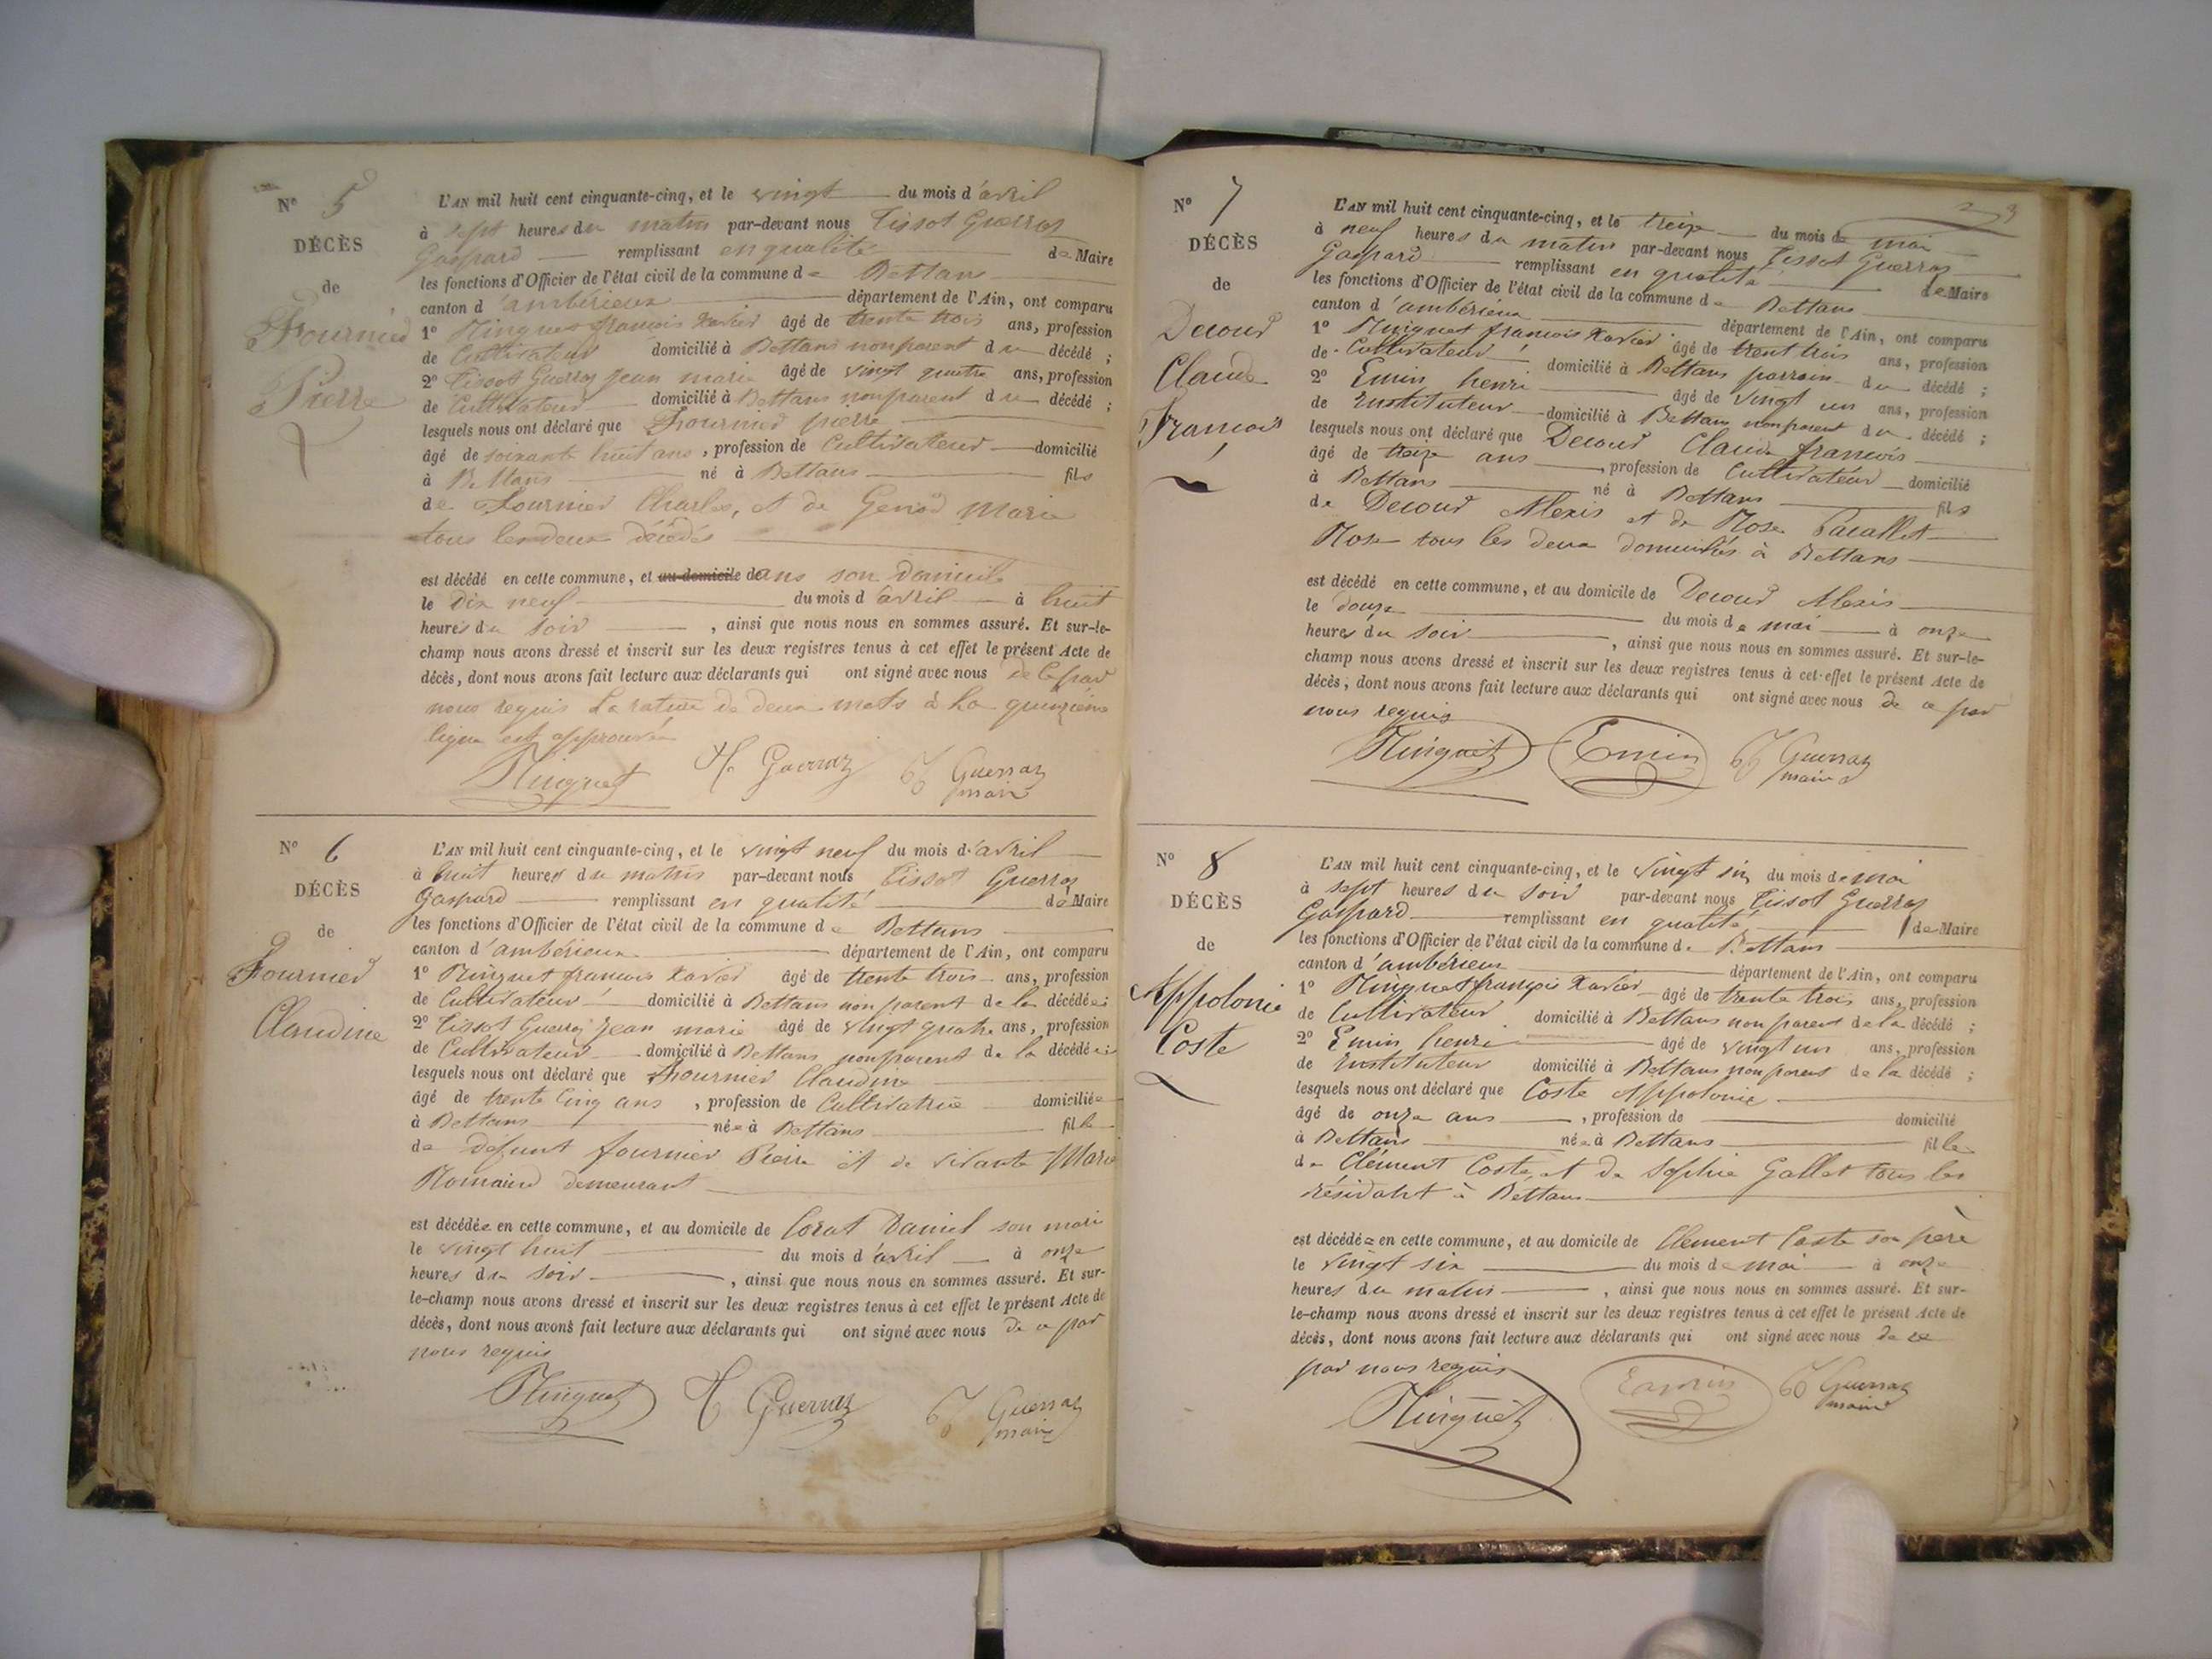 N° 5
DÉCÈS
de
Fournier
Pierre
L'AN mil huit cent cinquante-cinq, et le vingt du mois d'avril
à sept heures du matin par-devant nous Tissot Guerraz
Gaspard remplissant en qualité de Maire
les fonctions d'Officier de l'état civil de la commune de Bettans
canton d'ambérieux département de l'Ain, ont comparu
1° Ninguet françois Xavier âgé de trente trois ans, profession
de Cultivateur domicilié à Bettans non parent du décédé ;
2° Tissot Guerraz Jean marie âgé de vingt quatre ans, profession
de Cultivateur domicilié à Bettans non parent du décédé ;
lesquels nous ont déclaré que Fournier pierre
âgé de soixante huit ans, profession de Cultivateur domicilié
à Bettans né à Bettans fils
de Fournier Charles, et de Genod Marie
tous les deux décédés
est décédé en cette commune, et au domicile dans son domicile
le dix neuf du mois d'avril à huit
heures du soir, ainsi que nous nous en sommes assuré. Et sur-le-
champ nous avons dressé et inscrit sur les deux registres tenus à cet effet le présent Acte de
décès, dont nous avons fait lecture aux déclarants qui ont signé avec nous de ce par
nous requis La rature de deux mots à la quinzième
ligne est approuvée
Ninguet Guerraz Guerraz
maire
N° 6
DÉCÈS
de
Fournier
Claudine
L'AN mil huit cent cinquante-cinq, et le vingt neuf du mois d'avril
à huit heures du matin par-devant nous Tissot Guerraz
Gaspard remplissant en qualité de Maire
les fonctions d'Officier de l'état civil de la commune de Bettans
canton d'ambérieux département de l'Ain, ont comparu
1° Ninguet francois Xavier âgé de trente trois ans, profession
de Cultivateur domicilié à Bettans non parent de la décédée ;
2° Tissot Guerraz Jean marie âgé de vingt quatre ans, profession
de Cultivateur domicilié à Bettans non parent de la décédée ;
lesquels nous ont déclaré que Fournier Claudine
âgé de trente cinq ans, profession de Cultivatrice domiciliée
à Bettans née à Bettans fille
de defunt fournier Pierre et de vivante Marie
Romain demeurant
est décédée en cette commune, et au domicile de Corat Daniel son mari
le vingt huit du mois d'avril à onze
heures du soir, ainsi que nous nous en sommes assuré. Et sur-
le-champ nous avons dressé et inscrit sur les deux registres tenus à cet effet le présent Acte de
décès, dont nous avons fait lecture aux déclarants qui ont signé avec nous de ce par
nous requis
Ninguet Guerraz Guerraz
maire
N° 7
DÉCÈS
de
Decour
Claude
Francois
L'AN mil huit cent cinquante-cinq, et le treize du mois de mai
à neuf heures du matin par-devant nous Tissot Guerraz
Gaspard remplissant en qualité de Maire
les fonctions d'Officier de l'état civil de la commune de Bettans
canton d'ambérieux département de l'Ain, ont comparu
1° Ninguet francois Xavier âgé de trent trois ans, profession
de Cultivateur domicilié à Bettans parrain du décédé ;
2° Emin henri âgé de vingt un ans, profession
de Instituteur domicilié à Bettans non parent du décédé ;
lesquels nous ont déclaré que Decour Claude francois
âgé de treize ans, profession de Cultivateur domicilié
à Bettans né à Bettans fils
de Decour Alexis et de Rose Pacallet
Rose tous les deux domiciliés à Bettans
est décédé en cette commune, et au domicile de Decour Alexis
le douze du mois de mai à onze
heures du soir, ainsi que nous nous en sommes assuré. Et sur-le-
champ nous avons dressé et inscrit sur les deux registres tenus à cet effet le présent Acte de
décès, dont nous avons fait lecture aux déclarants qui ont signé avec nous de ce par
nous requis
Ninguet Emin Guerraz
maire
N° 8
DÉCÈS
de
Appolonie
Coste
L'AN mil huit cent cinquante-cinq, et le vingt six du mois de mai
à sept heures du soir par-devant nous Tissot Guerraz
Gaspard remplissant en qualité de Maire
les fonctions d'Officier de l'état civil de la commune de Bettans
canton d'ambérieux département de l'Ain, ont comparu
1° Ninguet françois Xavier âgé de trente trois ans, profession
de Cultivateur domicilié à Bettans non parent de la décédé ;
2° Emin henri âgé de vingt un ans, profession
de Instituteur domicilié à Bettans non parent de la décédé ;
lesquels nous ont déclaré que Coste Appolonie
âgé de onze ans, profession de domicilié
à Bettans née à Bettans fille
de Clément Coste, et de Sophie Gallet tous les
résidant à Bettans
est décédée en cette commune, et au domicile de Clément Coste son père
le vingt six du mois de mai à onze
heures du matin, ainsi que nous nous en sommes assuré. Et sur-
le-champ nous avons dressé et inscrit sur les deux registres tenus à cet effet le présent Acte de
décès, dont nous avons fait lecture aux déclarants qui ont signé avec nous de ce
par nous requis
Ninguet Emin Guerraz
maire